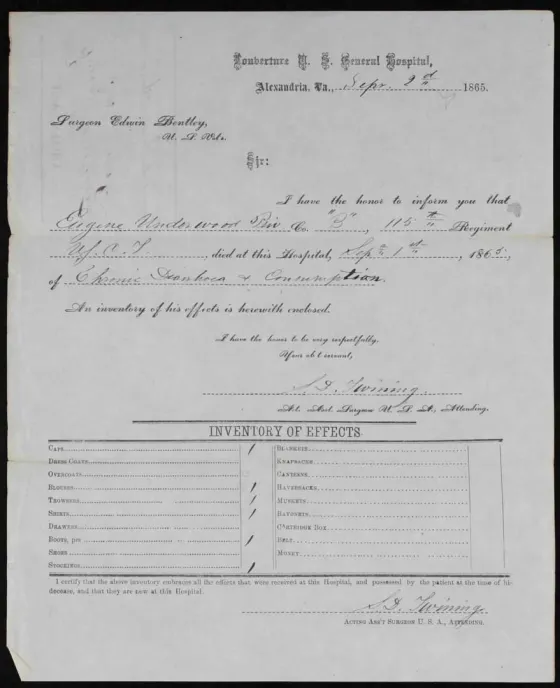 Louverture U. S. General Hospital,
Alexandria, Va., Sept. 2nd 1865.
Surgeon Edwin Bentley,
U. S. Vols.
Sir:
I have the honor to inform you that
Eugene Underwood Priv Co. "B", 115th Regiment
U.S.C.T, died at this Hospital, Sept 1st, 1865,
of Chronic Diarrhoea & Consumption.
An inventory of his effects is herewith enclosed.
I have the honor to be very respectfully,
Your ob't servant,
S.D. Twining.
Act. Asst. Surgeon U. S. A., Attending.
INVENTORY OF EFFECTS
CAPS / BLANKETS
DRESS COATS KNAPSACKS
OVERCOATS CANTEENS
BLOUSES / HAVERSACKS
TROWSERS / MUSKETS
SHIRTS / BAYONETS
DRAWERS CARTRIDGE BOX
BOOTS, prs / BELT
SHOES MONEY
STOCKINGS /
I certify that the above inventory embraces all the effects that were received at this Hospital, and possessed by the patient at the time of his
decease, and that they are now at this Hospital.
S.D. Twining.
ACTING ASS'T SURGEON U. S. A., ATTENDING.